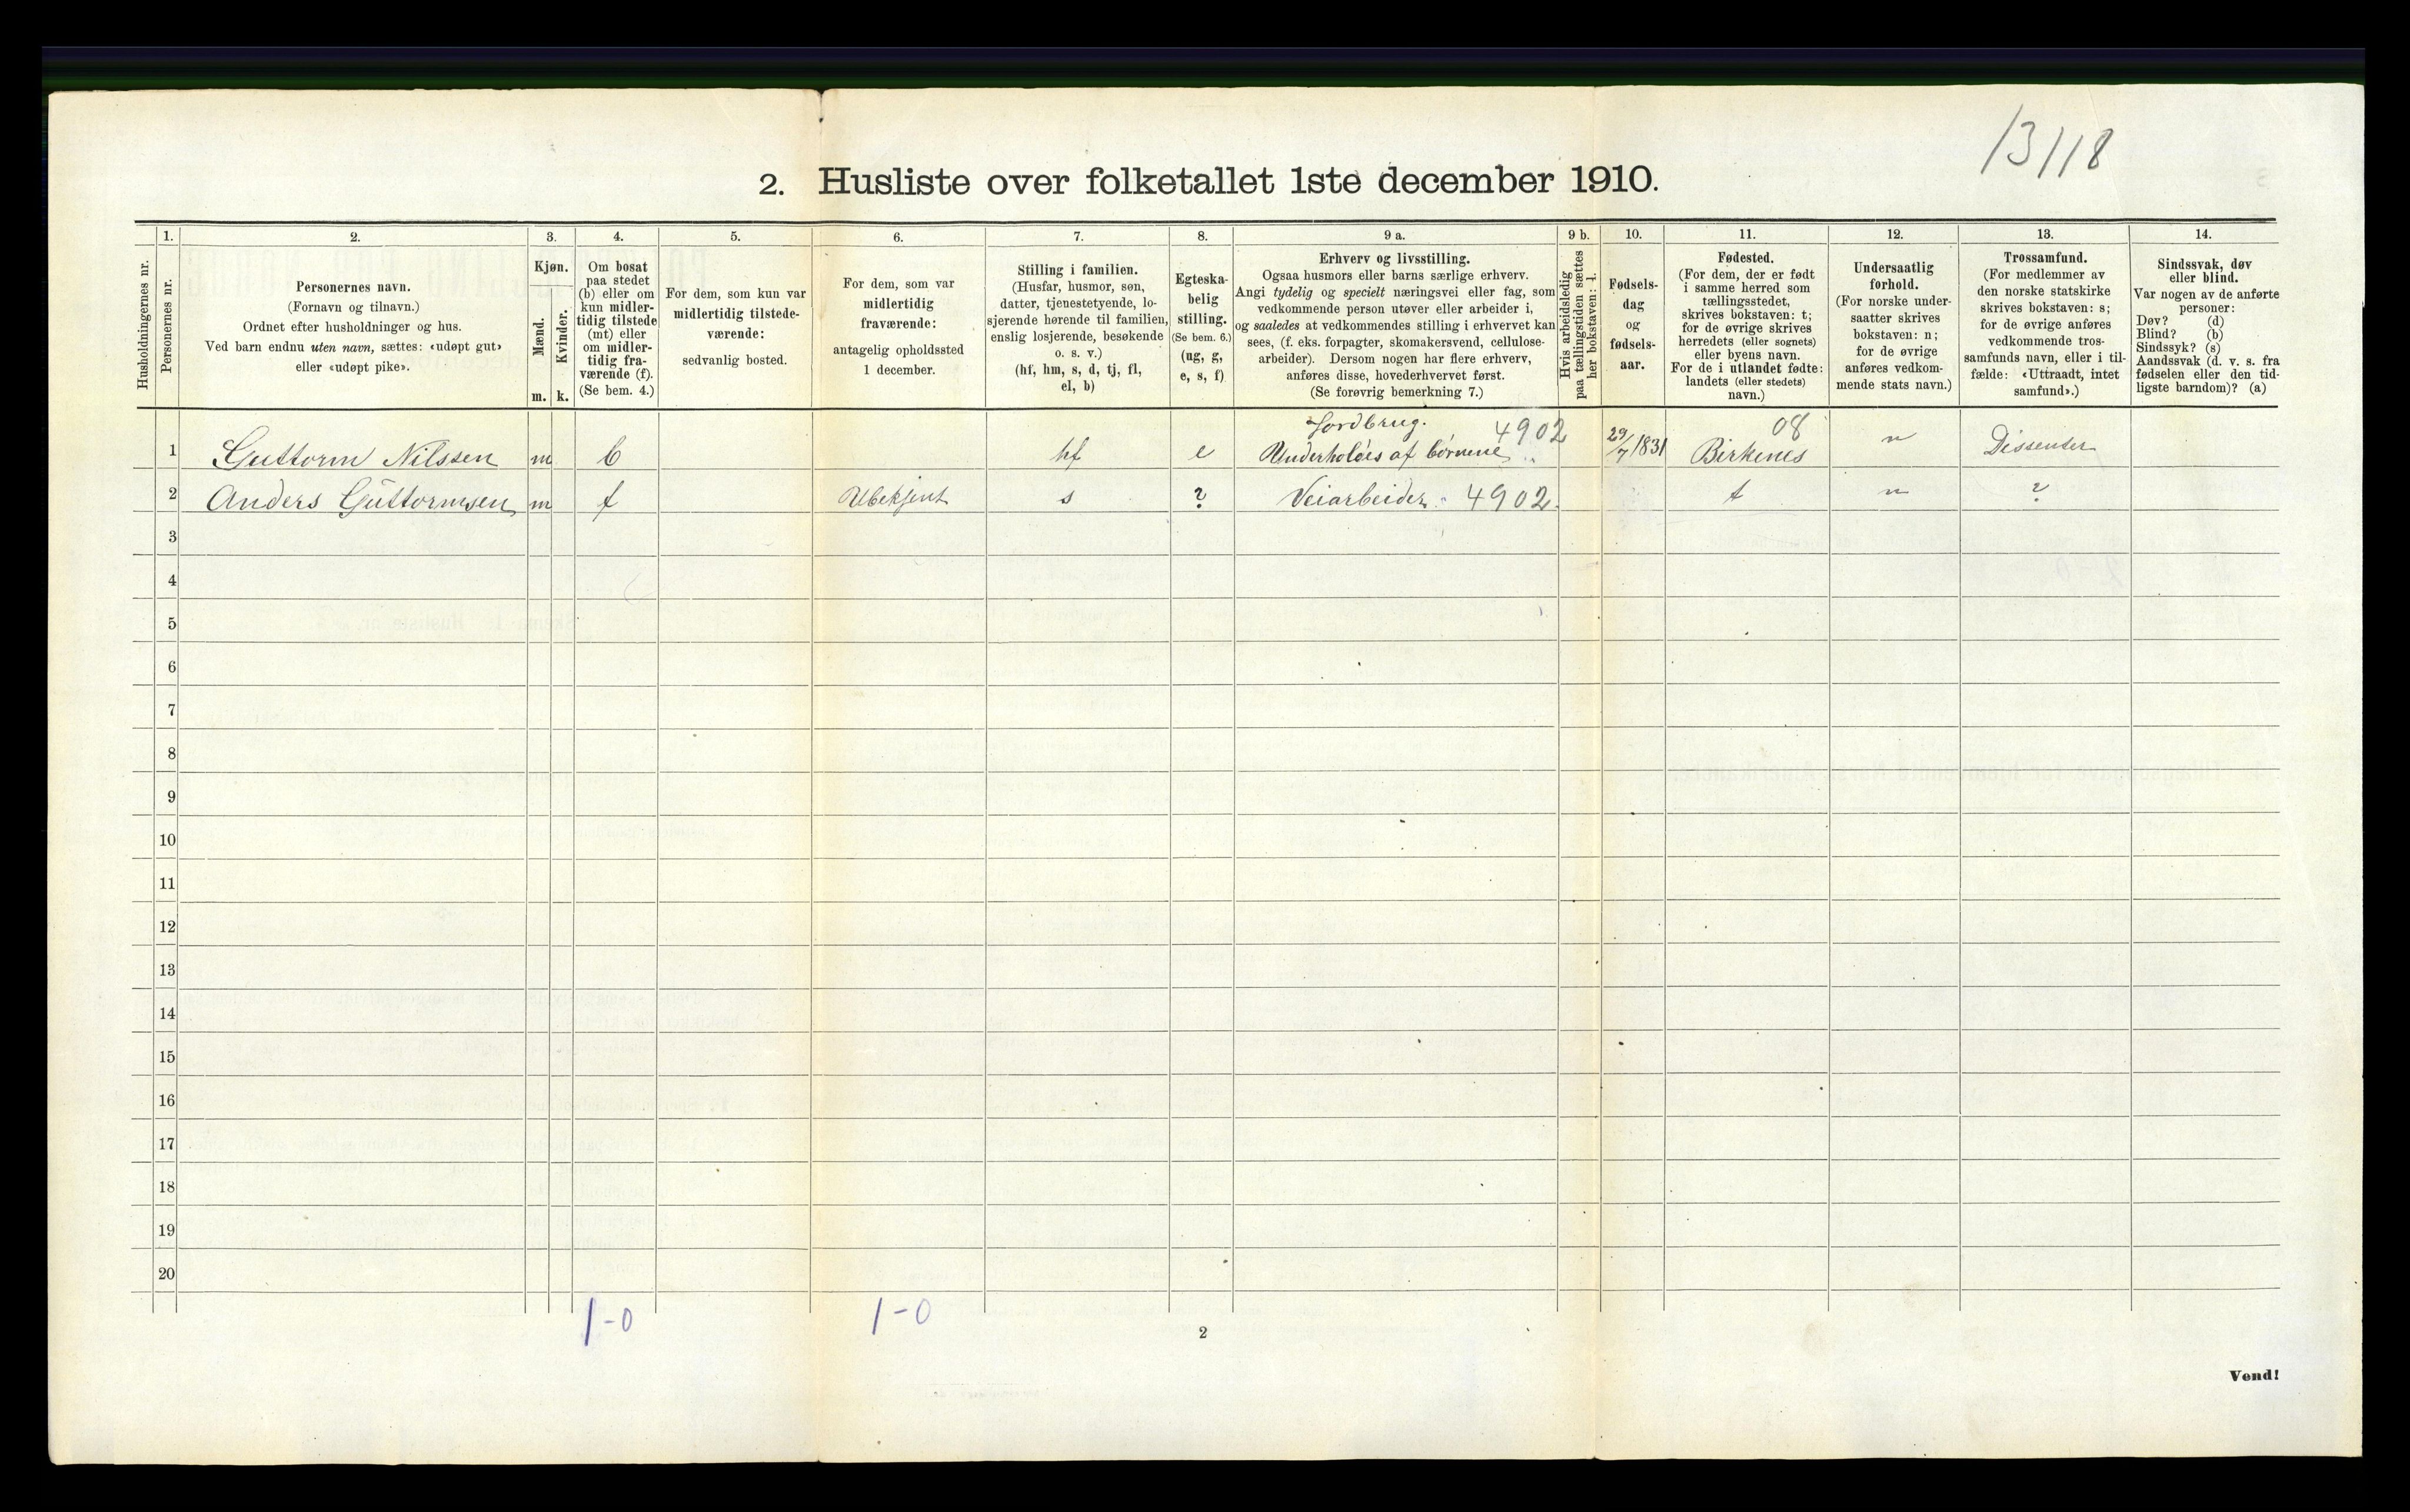 13/18
2. Husliste over folketallet 1ste december 1910.
1. 2. 3. 4. 5. 6. 7. 8. 9 a. 9 b. 10. 11. 12. 13. 14.
Husholdningernes nr.
Personernes nr.
Personernes navn.
(Fornavn og tilnavn.)
Ordnet efter husholdninger og hus.
Ved barn endnu uten navn, sættes: «udøpt gut»
eller «udøpt pike».
Kjøn.
Mænd.
Kvinder.
m. k.
Om bosat
paa stedet
(b) eller om
kun midler-
tidig tilstede
(mt) eller
om midler-
tidig fra-
værende (f).
(Se bem. 4.)
For dem, som kun var
midlertidig tilstede-
værende:
sedvanlig bosted.
For dem, som var
midlertidig
fraværende:
antagelig opholdssted
1 december.
Stilling i familien.
(Husfar, husmor, søn,
datter, tjenestetyende, lo-
sjerende hørende til familien,
enslig losjerende, besøkende
o. s. v.)
(hf, hm, s, d, tj, fl,
el, b)
Egteska-
belig
stilling.
(Se bem. 6.)
(ug, g,
e, s, f)
Erhverv og livsstilling.
Ogsaa husmors eller barns særlige erhverv.
Angi tydelig og specielt næringsvei eller fag, som
vedkommende person utøver eller arbeider i,
og saaledes at vedkommendes stilling i erhvervet kan
sees, (f. eks. forpagter, skomakersvend, cellulose-
arbeider). Dersom nogen har flere erhverv,
anføres disse, hovederhvervet først.
(Se forøvrig bemerkning 7.)
Hvis arbeidsledig
paa tællingstiden sættes
her bokstaven: l.
Fødsels-
dag
og
fødsels-
aar.
Fødested.
(For dem, der er født
i samme herred som
tællingsstedet,
skrives bokstaven: t;
for de øvrige skrives
herredets (eller sognets)
eller byens navn.
For de i utlandet fødte:
landets (eller stedets)
navn.)
Undersaatlig
forhold.
(For norske under-
saatter skrives
bokstaven: n;
for de øvrige
anføres vedkom-
mende stats navn.)
Trossamfund.
(For medlemmer av
den norske statskirke
skrives bokstaven: s;
for de øvrige anføres
vedkommende tros-
samfunds navn, eller i til-
fælde: «Uttraadt, intet
samfund».)
Sindssvak, døv
eller blind.
Var nogen av de anførte
personer:
Døv? (d)
Blind? (b)
Sindssyk? (s)
Aandssvak (d. v. s. fra
fødselen eller den tid-
ligste barndom)? (a)
Jordbrug. 4902 08
1 Guttorm Nilssen m b hf e Underholdes af børnene „ 29/7 1831 Birkenes n Dissenter
2 Anders Guttormsen m f Ubekjent s ? Veiarbeider 4902. t n ?
3
4
5
6
7
8
9
10
11
12
13
14
15
16
17
18
19
20
1-0 1-0
2
Vend!